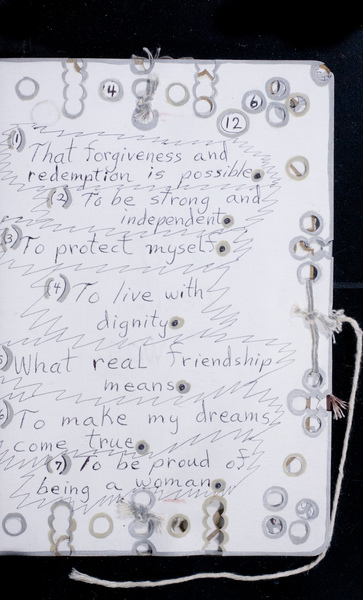 4
6
12
(1)
That forgiveness and
redemption is possible.
(2) To be strong and
independent.
(3) To protect myself.
(4) To live with
dignity.
5) What real friendship
means.
6) To make my dreams
come true.
(7) To be proud of
being a woman.